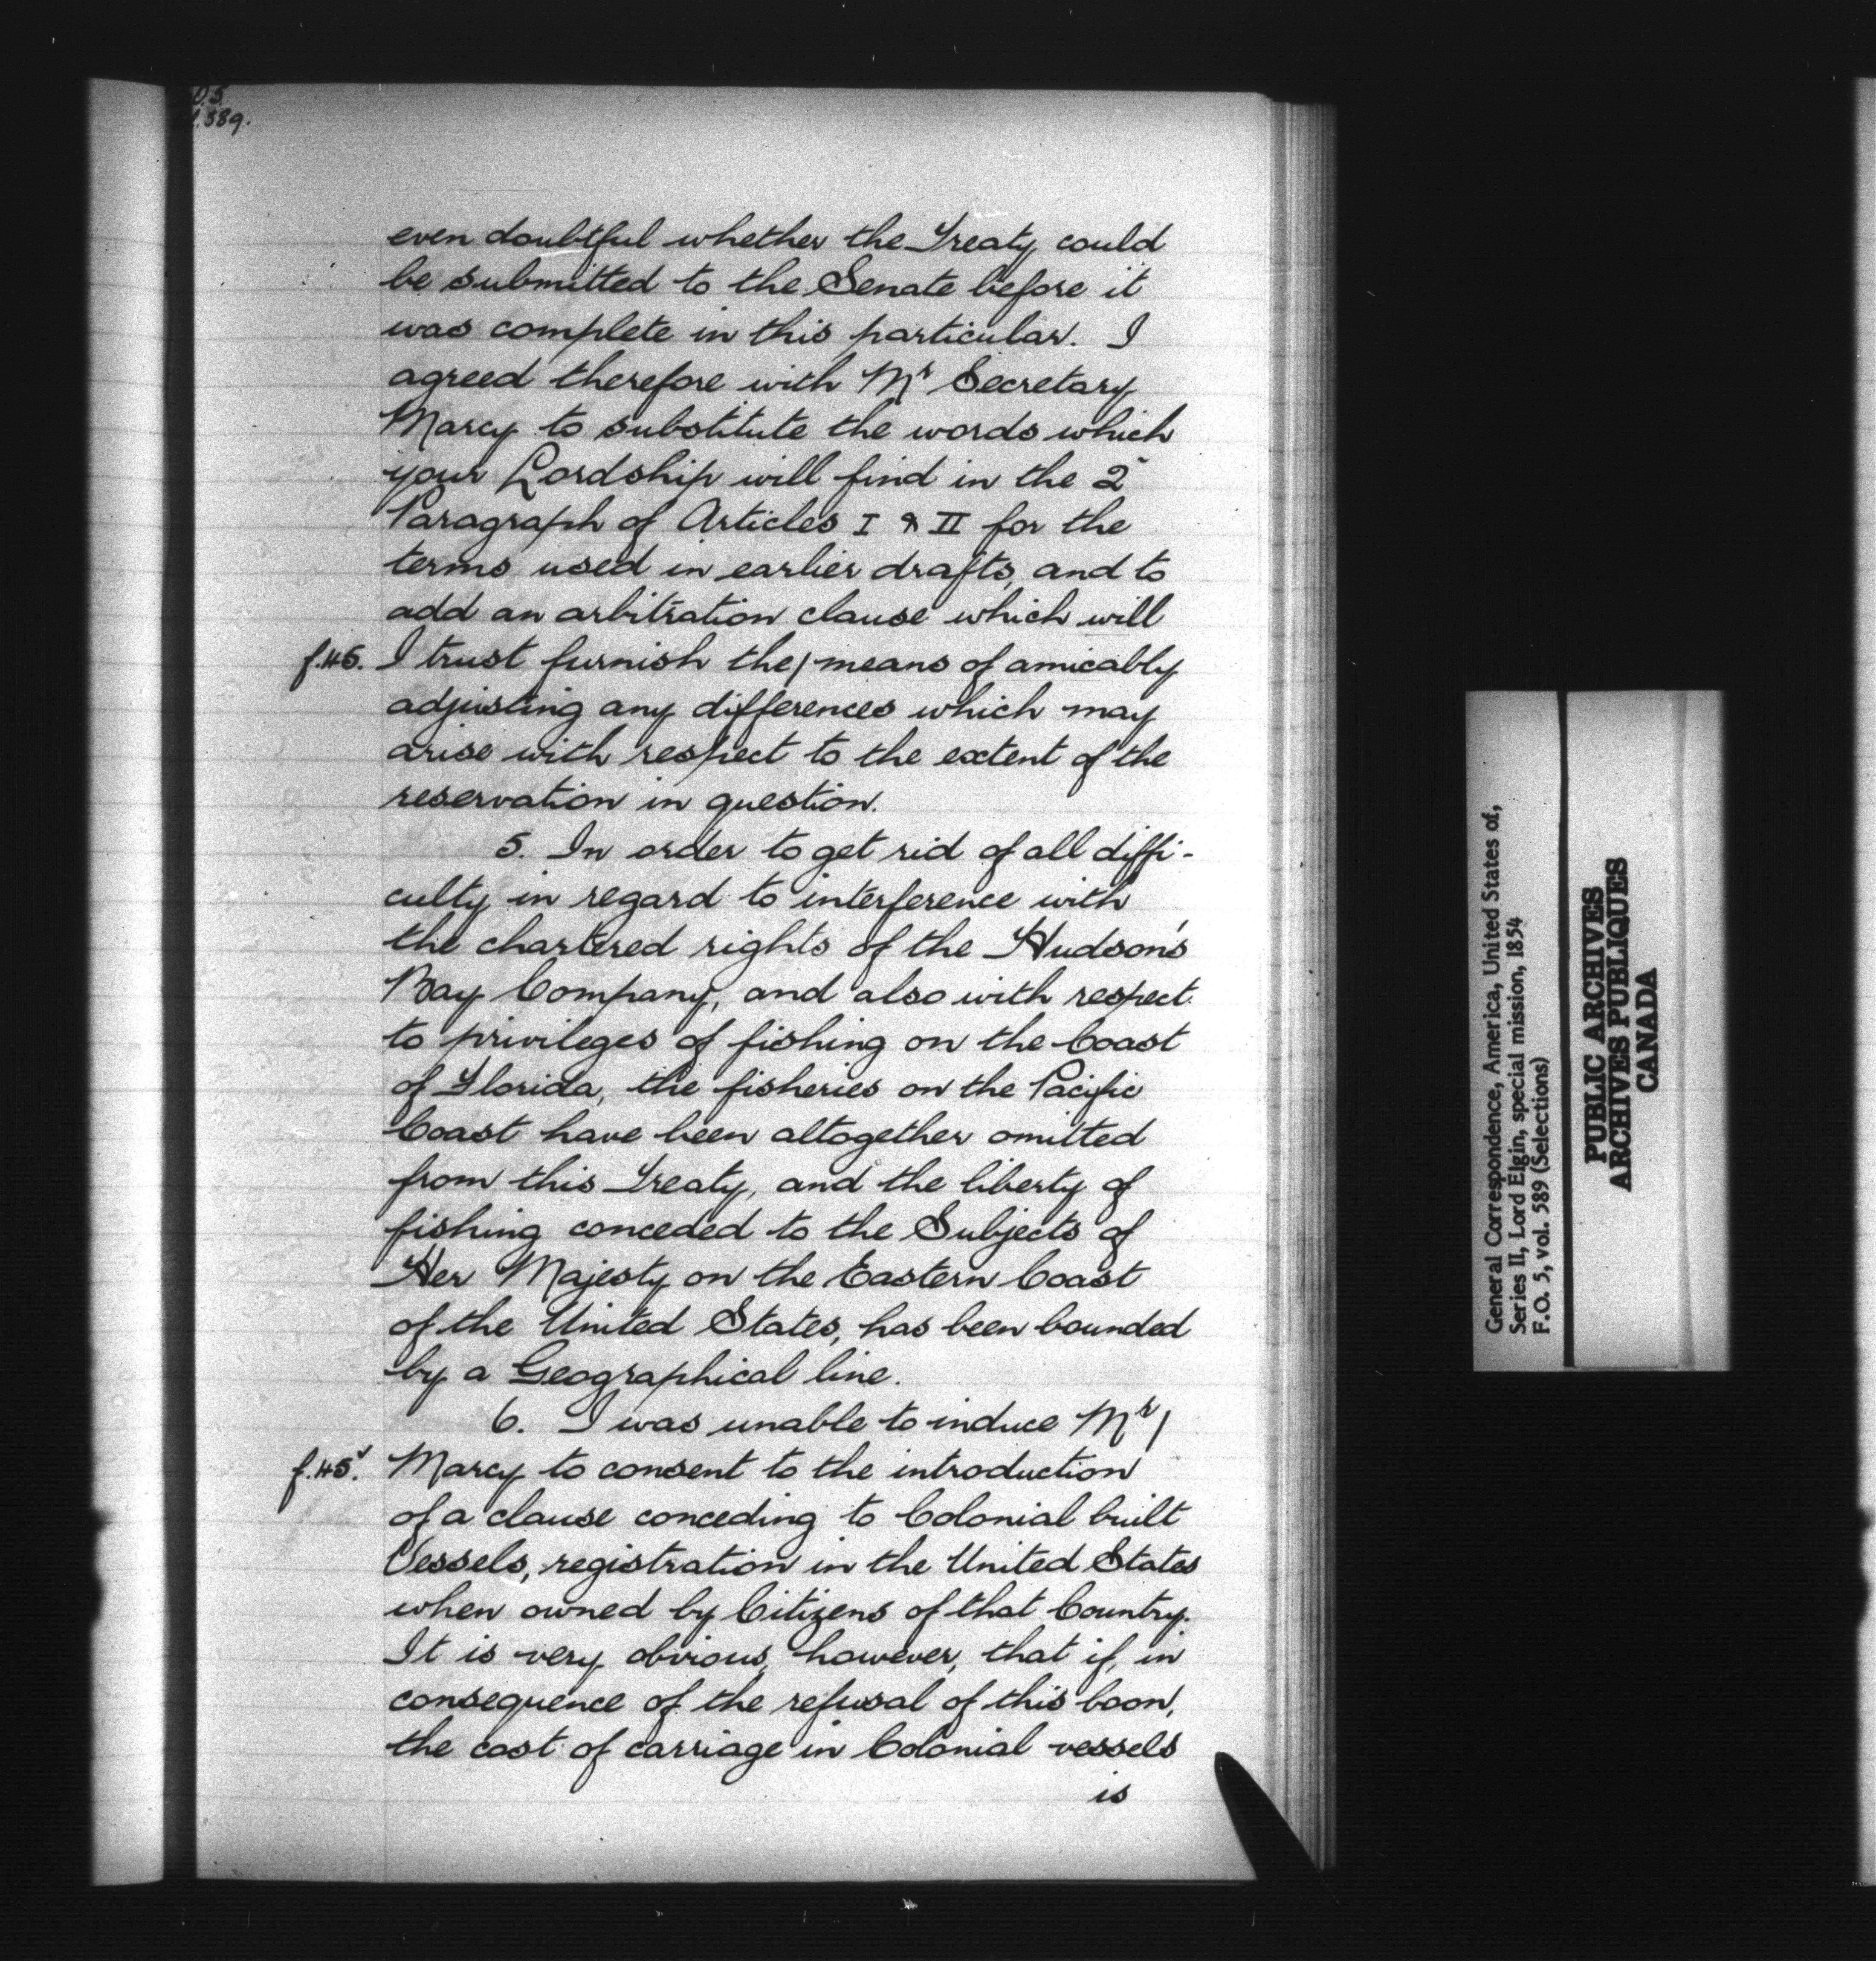 .589.
even doubtful whether the Treaty could
be submitted to the Senate before it
was complete in this particular. I
agreed therefore with Mr Secretary
Marcy to substitute the words which
your Lordship will find in the 2
Paragraph of Articles I & II for the
terms used in earlier drafts, and to
add an arbitration clause which will
f.45. I trust furnish the/means of amicably
adjusting any differences which may
arise with respect to the extent of the
reservation in question.
5. In order to get rid of all diffi-
culty in regard to interference with
the chartered rights of the Hudson's
Bay Company, and also with respect
to privileges of fishing on the Coast
of Florida, the fisheries on the Pacific
Coast have been altogether omitted
from this Treaty, and the liberty of
fishing conceded to the Subjects of
Her Majesty on the Eastern Coast
of the United States, has been bounded
by a Geographical line.
6. I was unable to induce Mr/
f.45v. Marcy to consent to the introduction
of a clause conceding to Colonial built
Vessels, registration in the United States
when owned by Citizens of that Country.
It is very obvious, however, that if, in
consequence of the refusal of this boon,
the cost of carriage in Colonial vessels
is
General Correspondence, America, United States of,
Series II, Lord Elgin, special mission, 1854
F.O. 5, vol. 589 (Selections)
PUBLIC ARCHIVES
ARCHIVES PUBLIQUES
CANADA